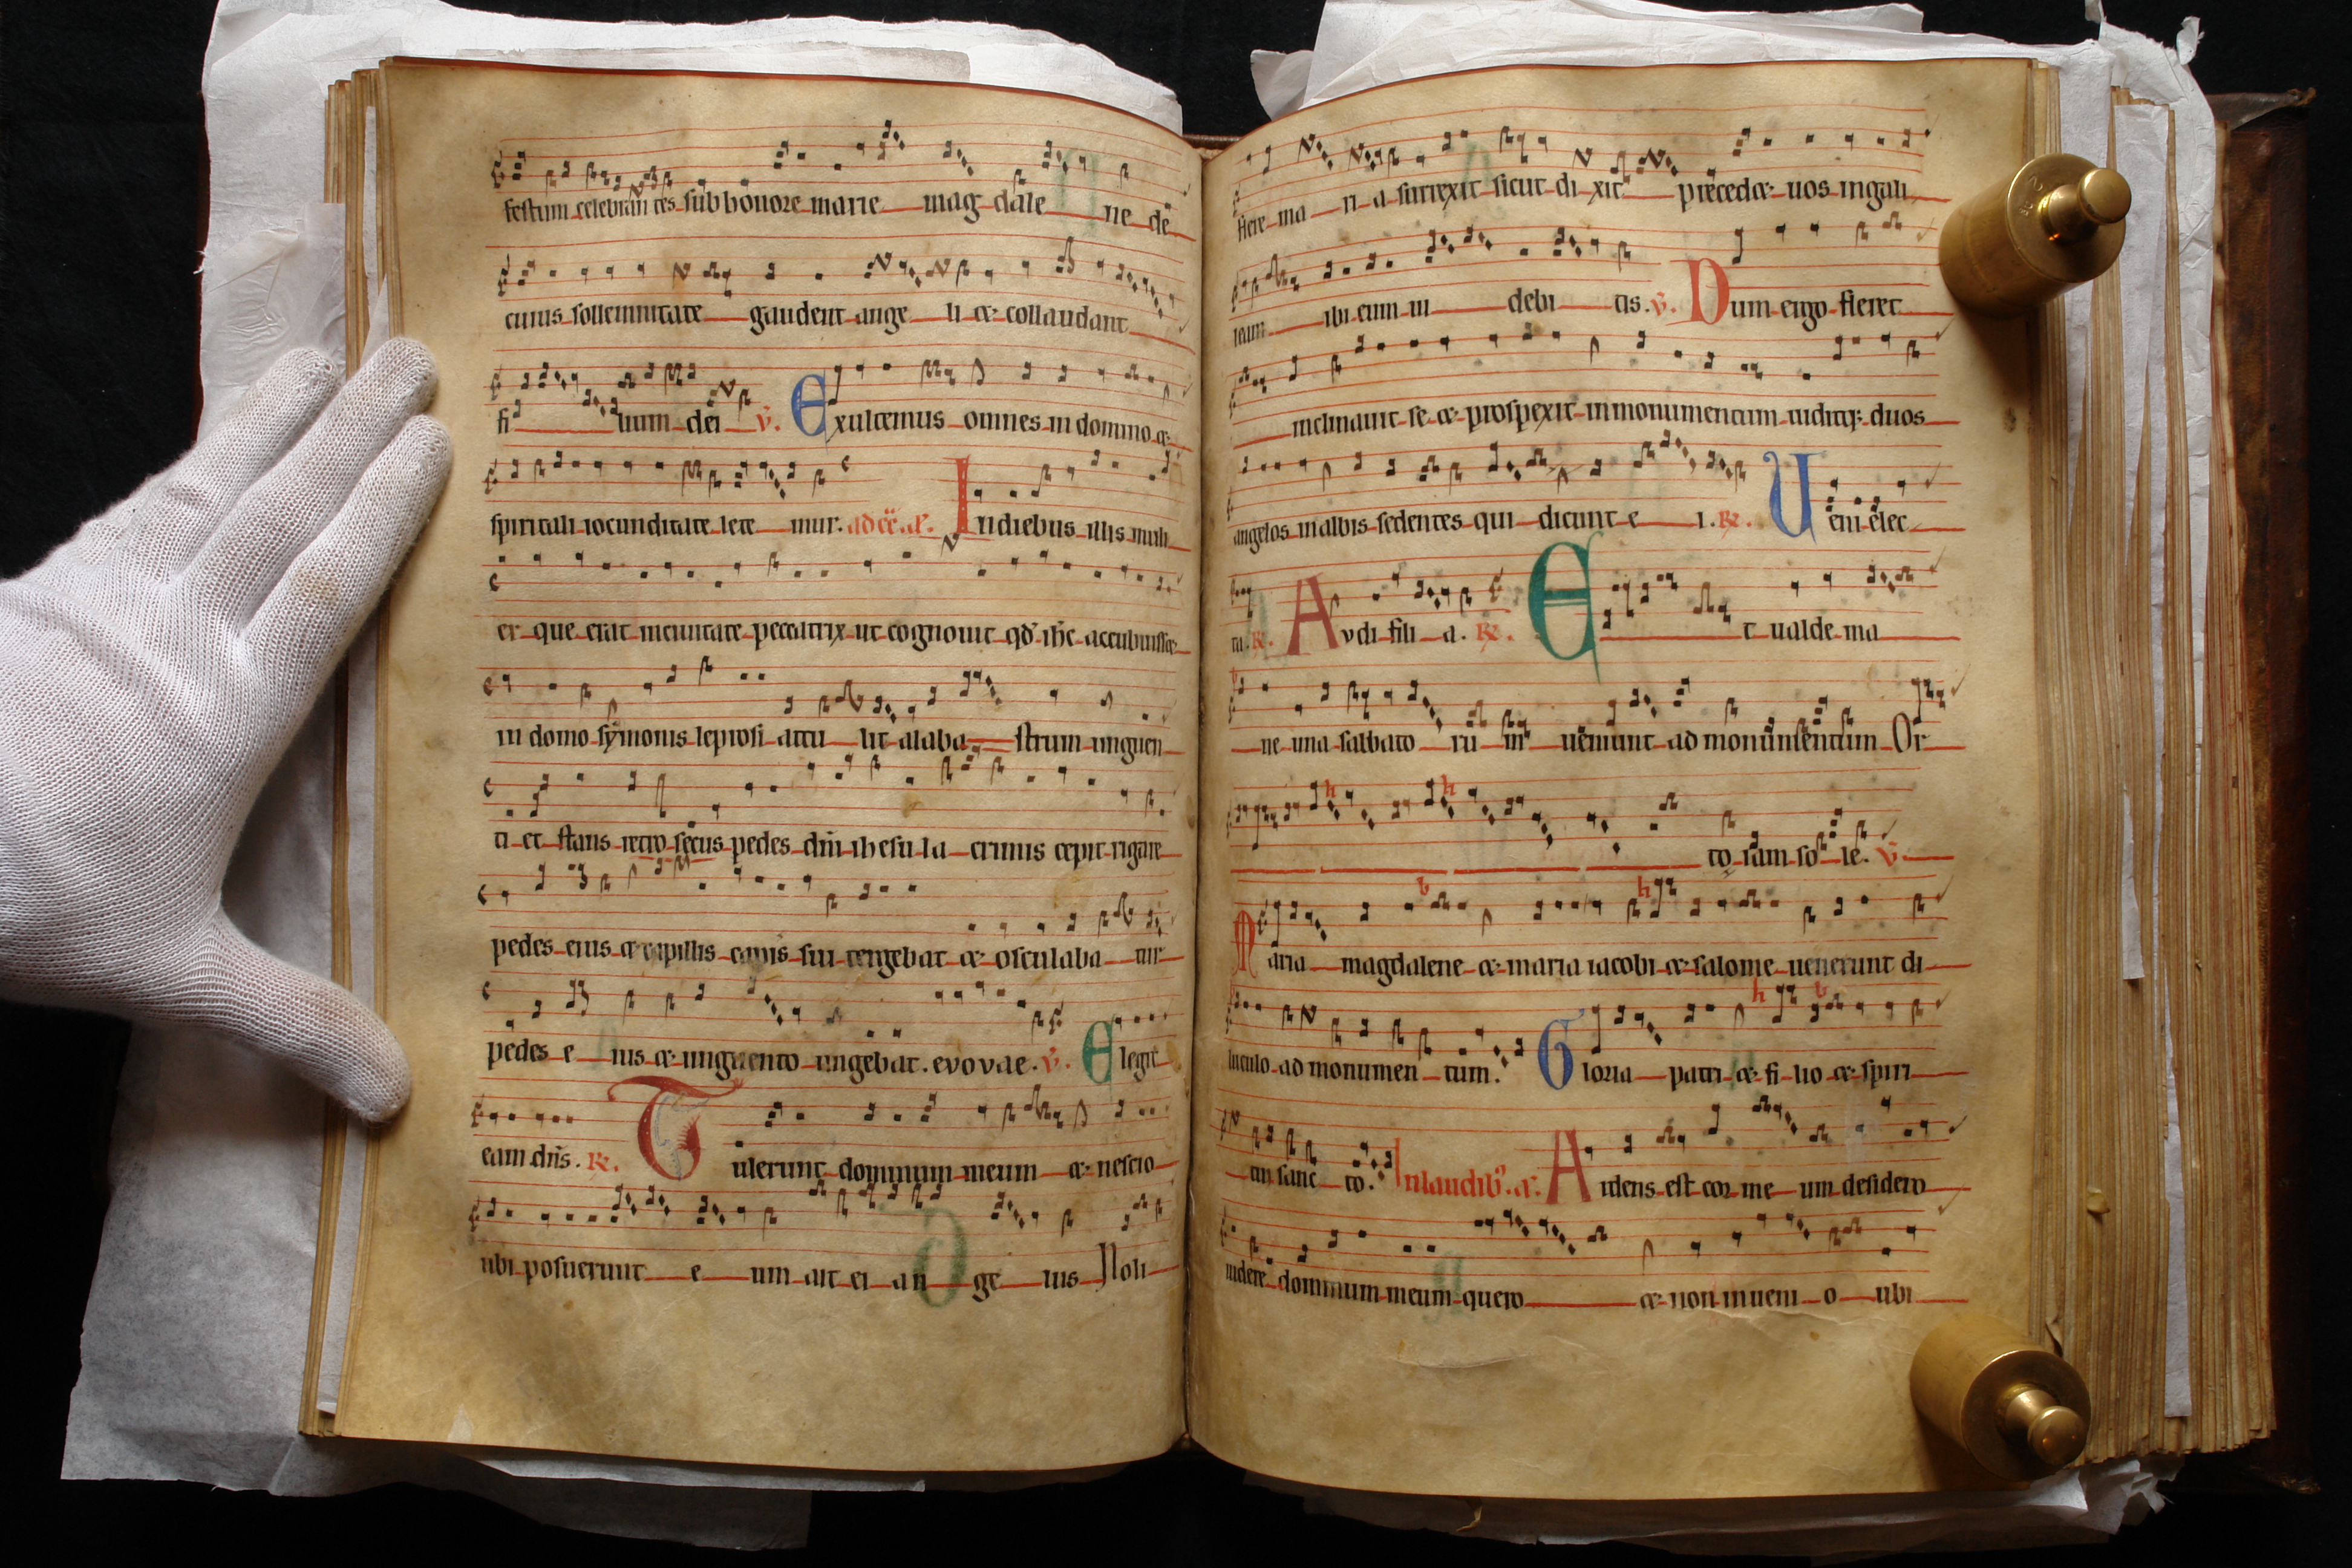 festum celebrantes sub honore marie magdalene de
cuius sollemnitate gaudent angeli et collaudant
filium dei v̄. Exultemus omnes in domino et
spiritali iocunditate letemur. ad cē. a. In diebus illis muli
er que erat in ciuitate peccatrix ut cognouit qd̄ ihc accubuisset
in domo symonis leprosi attulit alabastrum unguen
ti et stans retro secus pedes dn̄i ihesu lacrimis cepit rigare
pedes eius et capillis capitis sui tergebat et osculabatur
pedes eius et unguento ungebat. evovae. v̄. Elegit
eam dn̄s. R. Tulerunt dominum meum et nescio
ubi posuerunt eum ait ei angelus Noli
flere maria surrexit sicut dixit precedet uos in gali
leam ibi eum uidebitis. v̄. Dum ergo fleret
inclinauit se et prospexit in monumentum uiditq; duos
angelos in albis sedentes qui dicunt ei. R. Ueni elec
ta. R. Avdi filia. R. Et ualde ma
ne una sabbatorum ueniunt ad monumentum Or
to iam sole. v̄.
Maria magdalene et maria iacobi et salome uenerunt di
luculo ad monumentum. Gloria patri et filio et spiri
tui sancto. In laudib. a. Ardens est cor meum desidero
uidere dominum meum quero et non inuenio ubi